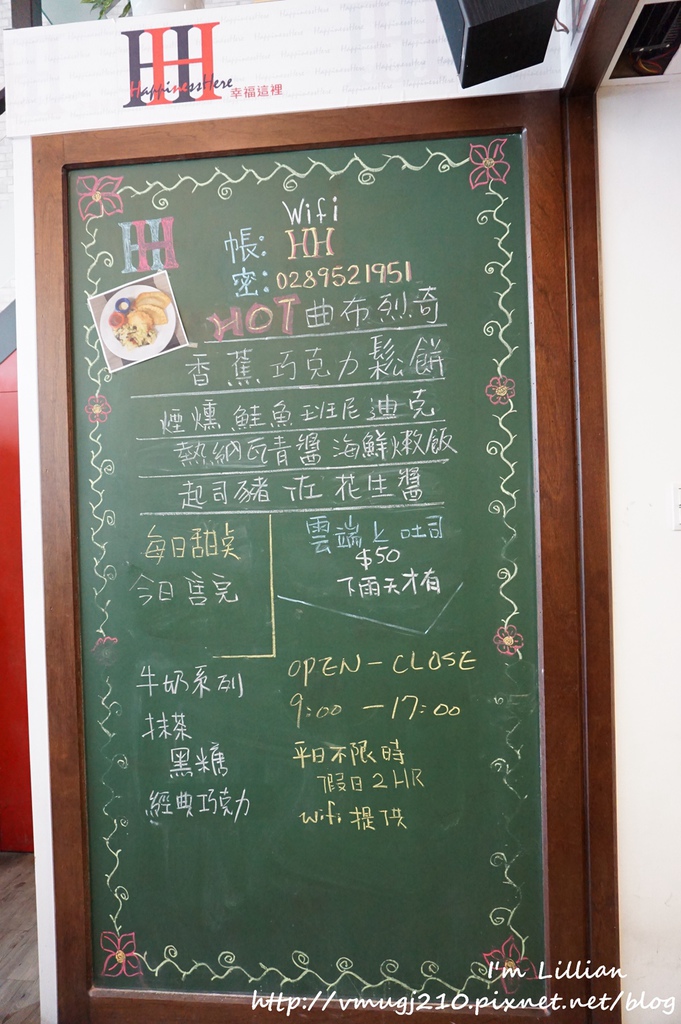 HH
HappinessHere 幸福這裡
HH
Wifi
帳: HH
密: 0289521951
HOT 曲布烈奇
香蕉巧克力鬆餅
煙燻鮭魚班尼迪克
熱納瓦青醬海鮮燉飯
起司豬佐花生醬
每日甜点
今日售完
雲端上吐司
$50
下雨天才有
牛奶系列
抹茶
黑糖
經典巧克力
OPEN - CLOSE
9:00 - 17:00
平日不限時
假日2HR
wifi 提供
I'm Lillian
http://vmugj210.pixnet.net/blog